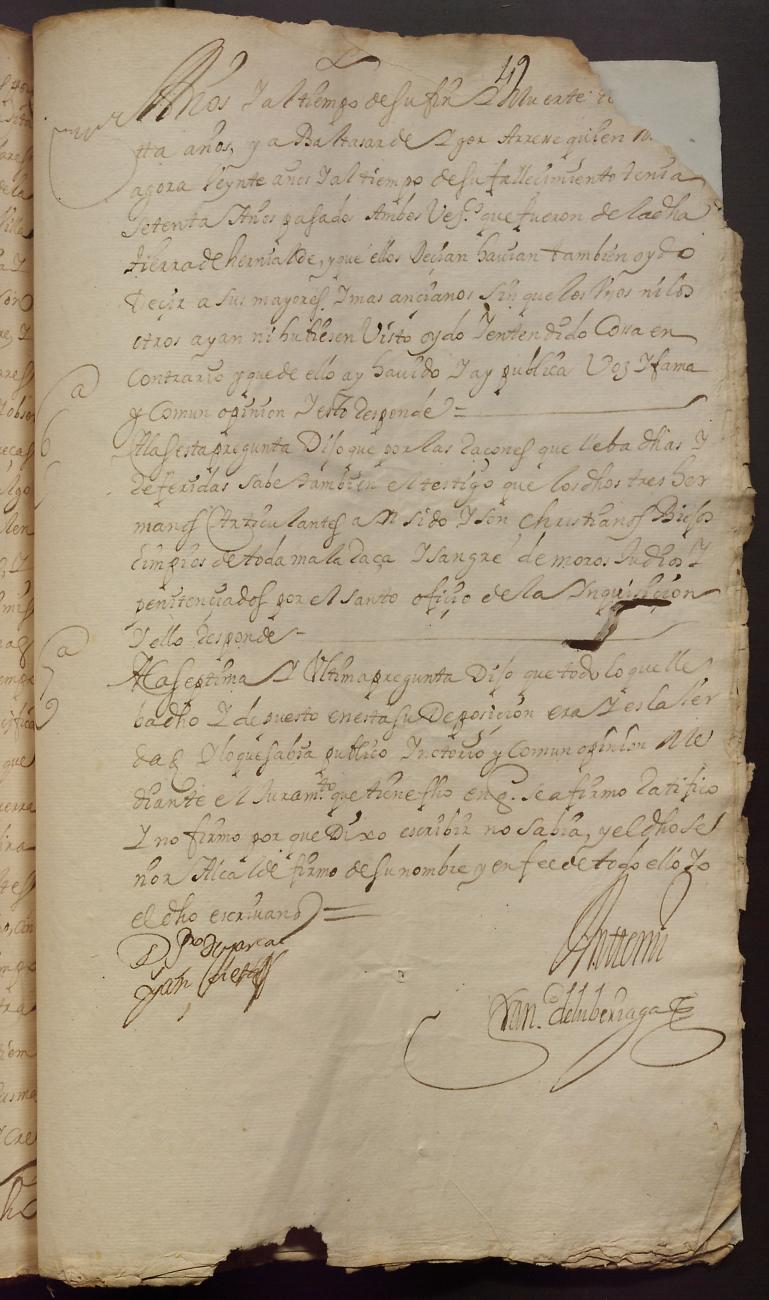 49
Años Y al tiempo de su fin Y Muerte
tta años, y a Baltasar de Ygor Arrese quien
agora beynte anos Y al tiempo de su fallecimiento tenia
setenta Años pasados Ambos Veç.ˢ que fueron de la dha
tierra de hernialde, y que ellos Deçian hauian tambien oydo
deçir a sus mayores Y mas ançianos sin que los Vnos ni los
otros ayan ni hubiesen Visto oydo Y entendido Cosa en
Contrario y que de ello ay hauido Y ay publica Voz Y fama
y Comun opinion Y esto Responde =
6ª
A la sesta pregunta Dijo que por las Raçones que lleba dhas Y
Referidas sabe tambien el testigo que los dhos tres her
manos Articulantes an sido Y son christianos Biejos
limpios de toda mala Raça Y sangre de moros Judios Y
penitençiados por el santo ofiçio de la Ynquisicion
Y ello Responde -
7ª
A la septima Y Vltima pregunta Dijo que todo lo que lle
ba dho Y depuesto en esta su Deposicion era Y es la Ver
dad Y lo que sabia publico Y notorio y Comun opinion Me
diante el Juramᵗᵒ que tiene fho en q. se afirmo Ratifico
Y no firmo por que Dixo escribir no sabia, y el dho se
ñor Alcalde firmo de su nombre y en fee de todo ello Yo
el dho escriuano =
Antemi